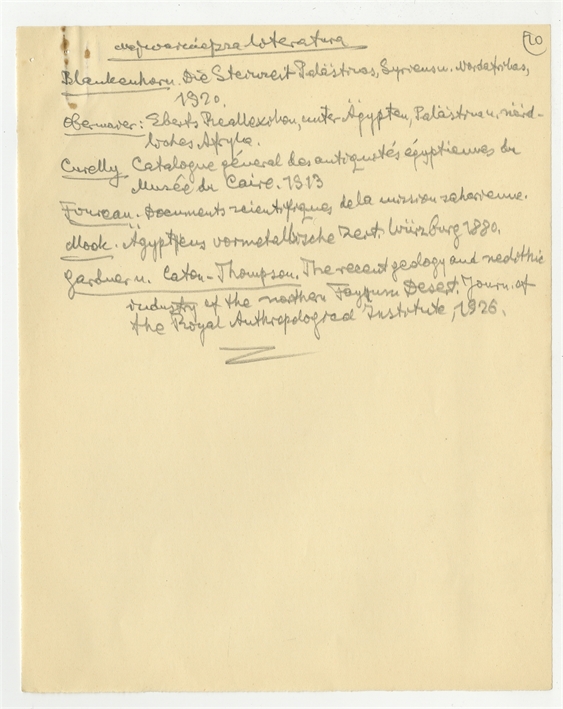 20
najważniejsza literatura
Blankenhorn. Die Steinzeit Palästinas, Syriens u. Nordafrikas,
1920.
Obermaier: Eberts Reallexikon, unter Ägypten, Palästina u. nörd-
liches Afrika.
Curelly Catalogue général des antiquités égyptiennes du
Musée du Caire. 1913
Foureau. Documents scientifiques de la mission saharienne.
Mook. Ägyptens vormetallische Zeit. Würzburg 1880.
Gardner u. Caton-Thompson. The recent geology and neolithic
industry of the northern Fayyum Desert. Journ. of
the Royal Anthropological Institute, 1926.